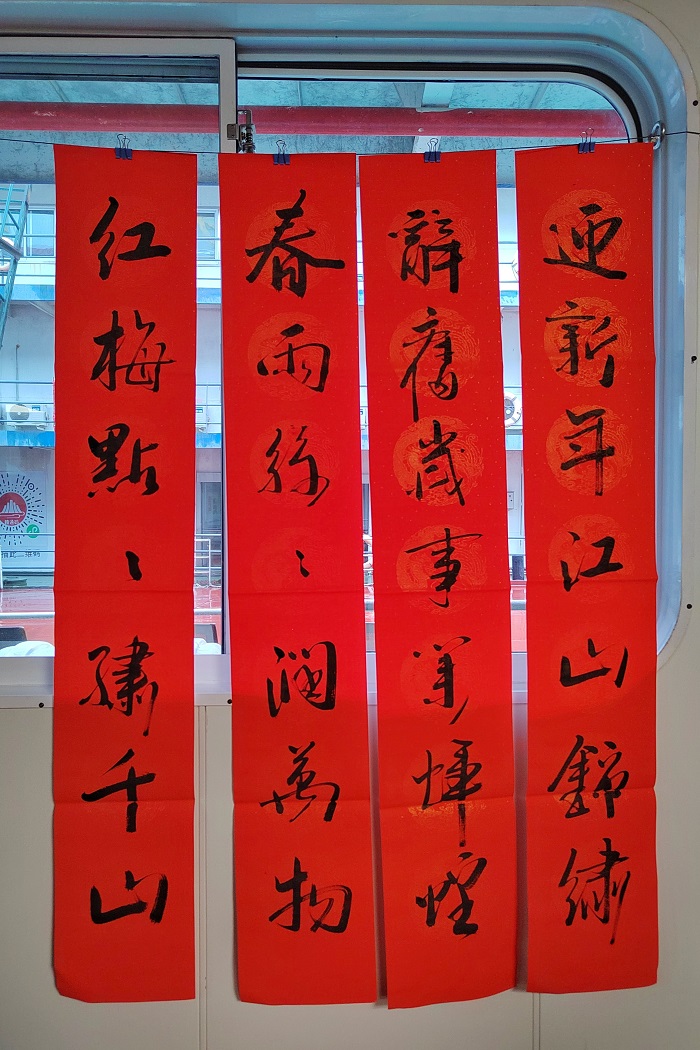 迎新年江山錦繡
辭舊歲事業煇煌
春雨絲々潤萬物
紅梅點々繡千山